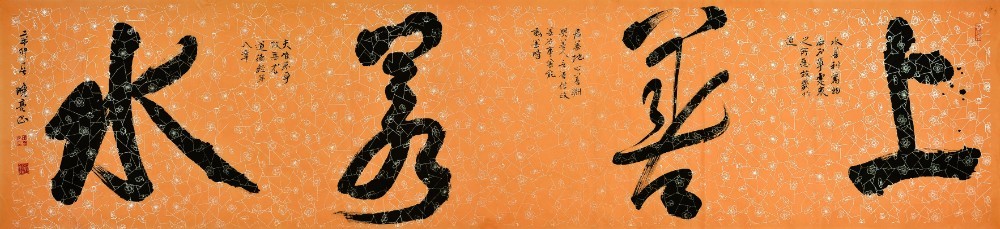 上善若水
水善利萬物
而不爭處衆人
之所惡故幾於
道
居善地心善淵
與善仁言善信政
善治事善能
動善時
夫唯不爭
故無尤
道德經第
八章